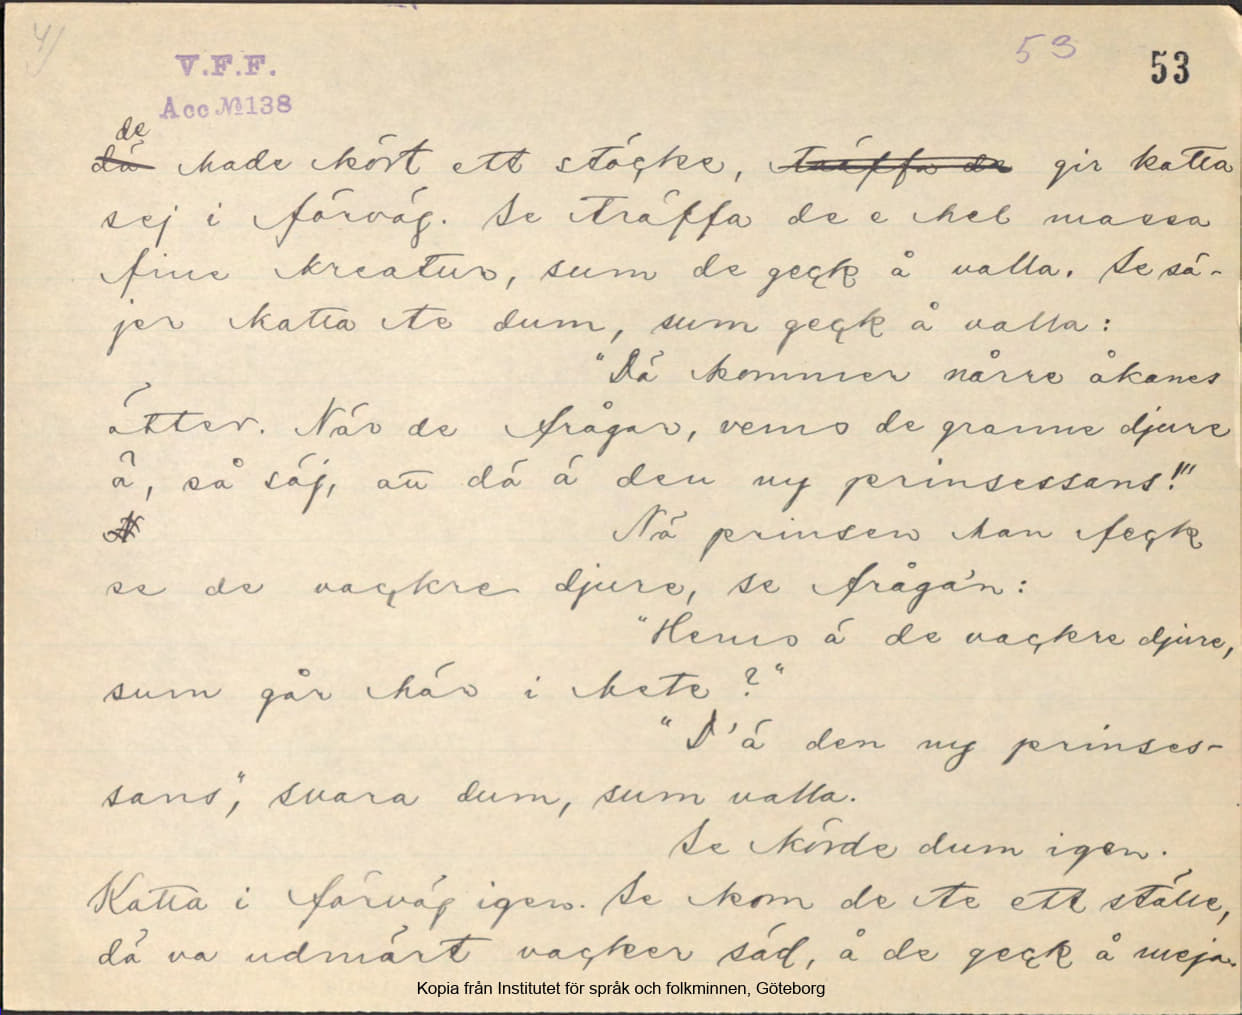 4)
V.F.F.
Acc № 138
53
53
de
dá hade kört ett stöçke, träffa de gir katta
sej i förväg. Se träffa de e hel massa
fine kreatur, sum de geçk å valla. Se sä-
jer katta te dum, sum geçk å valla:
"Dá kommer nårre åkanes
átter. Nár de frågar, vems de granne djure
á, så säj, att dá á den ny prinsessans!"
Ná prinsen han feçk
se de vaçkre djure, se fråga'n:
"Hems á de vaçkre djure,
sum går hár i hete?"
"D'á den ny prinses-
sans", svara dum, sum valla.
Se körde dum igen.
Katta i förväg igen. Se kom de te ett ställe,
dá va udmärt vaçker säd, å de geçk å meja.
Kopia från Institutet för språk och folkminnen, Göteborg